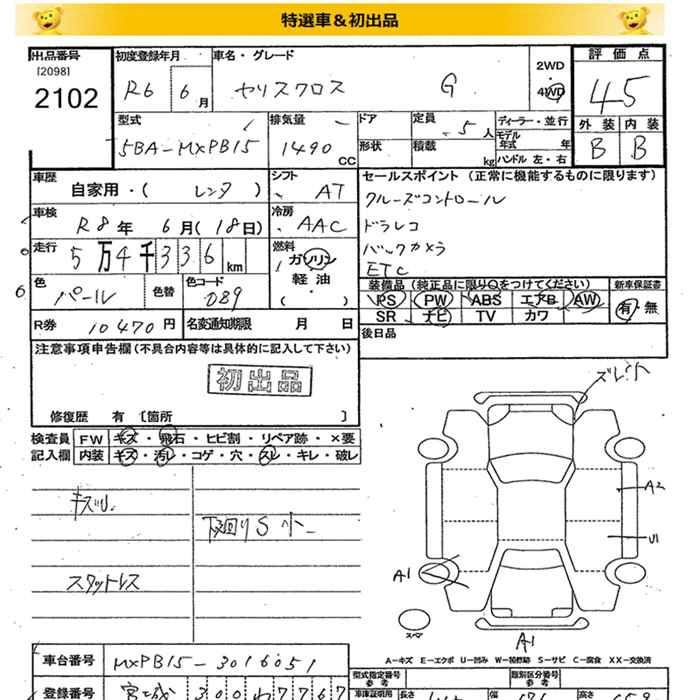 特選車＆初出品
出品番号
[2098]
2102
初度登録年月
R6 6月
車名・グレード
ヤリスクロス G
2WD
4WD
評価点
4.5
外装 内装
B B
型式
5BA-MXPB15
排気量
1490 CC
ドア
形状
定員
5人
積載
kg
ディーラー・並行
モデル年式 年
ハンドル 左・右
車歴
自家用・( レンタ )
シフト
AT
セールスポイント (正常に機能するものに限ります)
クルーズコントロール
ドラレコ
バックカメラ
ETC
車検
R8年 6月(18日)
冷房
AAC
走行
5万4千336km
燃料
ガソリン
軽油
色
パール
色替
色コード
089
装備品 (純正品に限り○をつけてください)
PS PW ABS エアB AW
SR ナビ TV カワ
新車保証書
有・無
R券 10470円
名変通知期限 月 日
後日品
注意事項申告欄 (不具合内容等は具体的に記入して下さい)
初出品
修復歴 有 〔箇所 〕
検査員記入欄
FW キズ・飛石・ヒビ割・リペア跡・×要
内装 キズ・汚レ・コゲ・穴・スレ・キレ・破レ
キズ凹
下廻りS小
スタットレス
ズレ
A2
U1
A1
A1
スペア
A-キズ E-エクボ U-凹み W-補修跡 S-サビ C-腐食 XX-交換済
車台番号 MXPB15-3016051
登録番号 宮城 300 わ 7767
型式指定番号
類別区分番号
参考
車庫証明用
長さ
幅
高さ